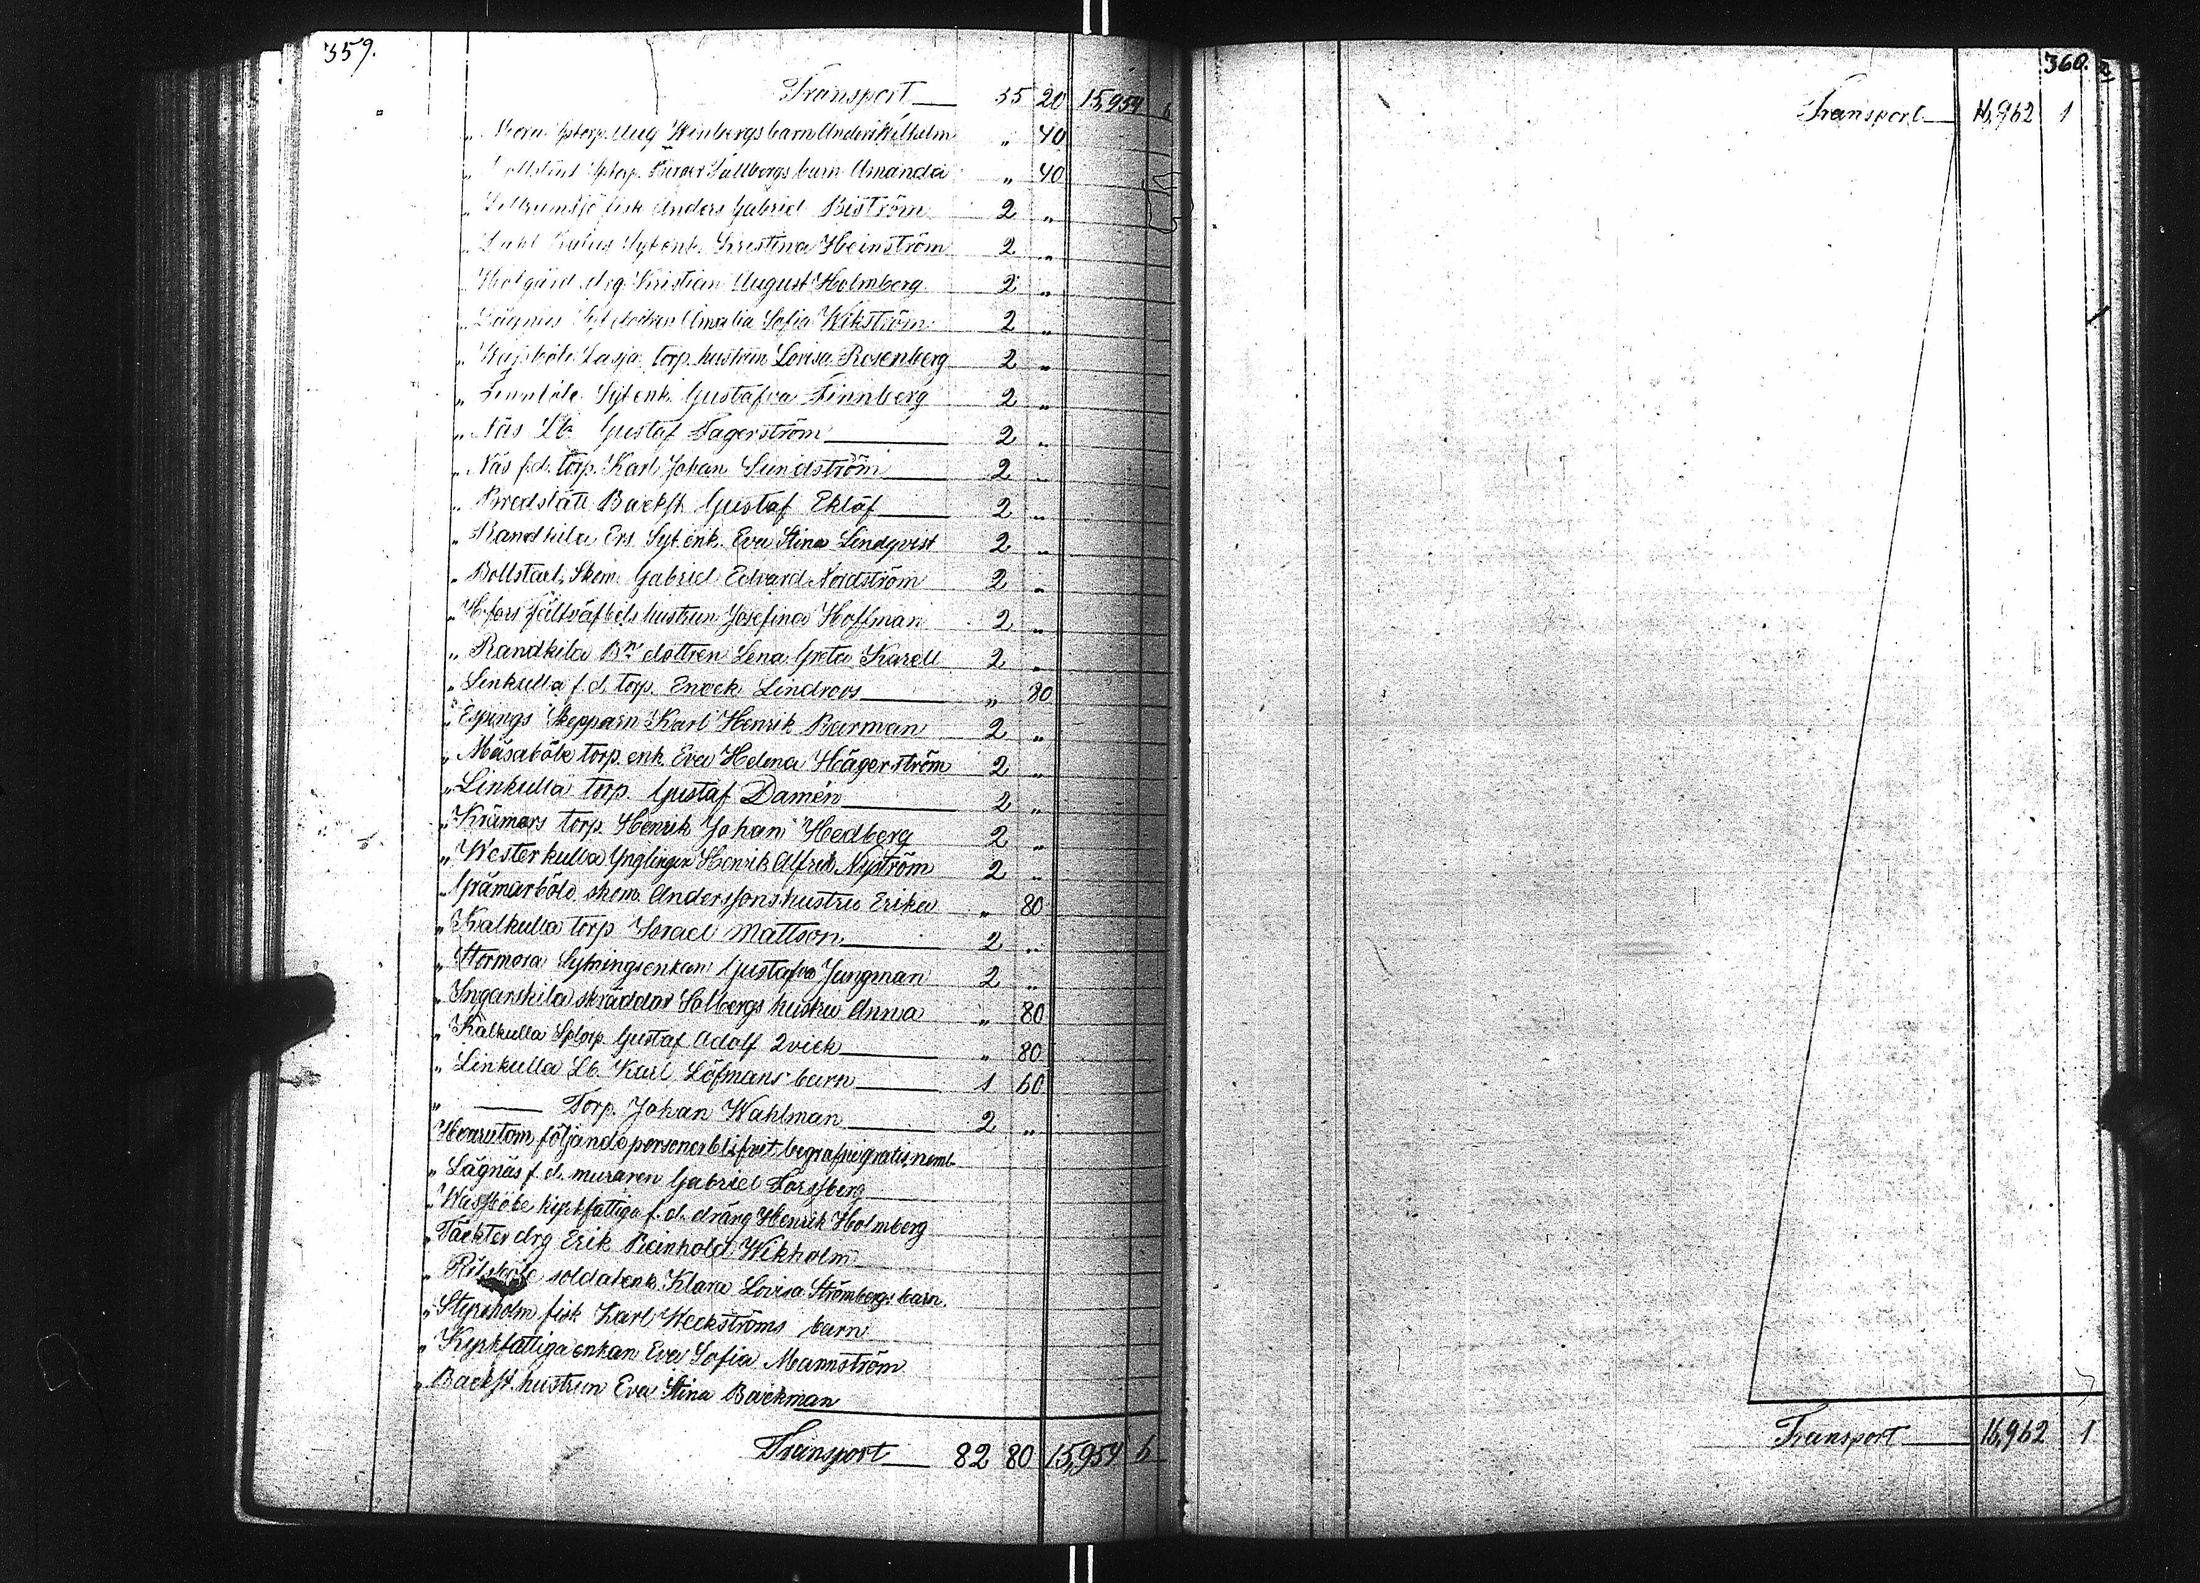 359.
Transport 35 20 15,954 6
" Sptorp. Aug Wenbergs barn Anders Wilhelm " 40
" Bollstad Sptorp. Birger Sallbergs barn Amanda " 40
" fisk Anders Gabriel Biström 2 "
" Sytenk. Kristina Heinström 2 "
" drg Kristian August Holmberg 2 "
" Lågnäs Amalia Sofia Wikström 2 "
" Lasja torp. hustrun Lovisa Rosenberg 2 "
" Sytenk. Gustafva Finnberg 2 "
" Näs Lb. Gustaf Fagerström 2 "
" Näs f.d. torp. Karl Johan Sundström 2 "
" Bredslätt Backst. Gustaf Eklöf 2 "
" Randkila Ers Sytenk. Eva Stina Lindqvist 2 "
" Bollstad, Skom. Gabriel Edvard Nordström 2 "
" H.fors fältväfbels hustrun Josefina Hoffman 2 "
" Randkila Bn dottren Lena Greta Karell 2 "
" Linkulla f. d. torp. Enock Lindroos " 80
" Espings Skepparn Karl Henrik Barman 2 "
" Mäsaböle torp. enk. Eva Helena Hägerström 2 "
" Linkulla torp. Gustaf Damén 2 "
" Krämars torp. Henrik Johan Hedberg 2 "
" Westerkulla Ynglingen Henrik Alfred Nyström 2 "
" Gråmarböle skom. Anderssons hustru Erika " 80
" Kalkulla torp Israel Mattson 2 "
" Stormora Sytningsenkan Gustafva Jungman 2 "
" Ingarskila skräddar Solbergs hustru Anna " 80
" Kålkulla Sptorp. Gustaf Adolf Qvick " 80
" Linkulla Lb. Karl Löfmans barn 1 60
" Torp. Johan Wahlman 2 "
Hvarutom följande personer blifvit begrafne gratis, neml.
" Lågnäs f. d. muraren Gabriel Forsberg
" Wassböle kyrkfattiga f. d. dräng Henrik Holmberg
" Täkter drg Erik Reinhold Wikholm
" soldatenk. Klara Lovisa Strömbergs barn.
" Styrsholm fisk Karl Weckströms barn
" Kyrkfattiga enkan Eva Sofia Mannström
" Backst. hustrun Eva Stina Backman
Transport 82 80 15,954 6
360.
Transport 15,962 1
Transport 15,962 1